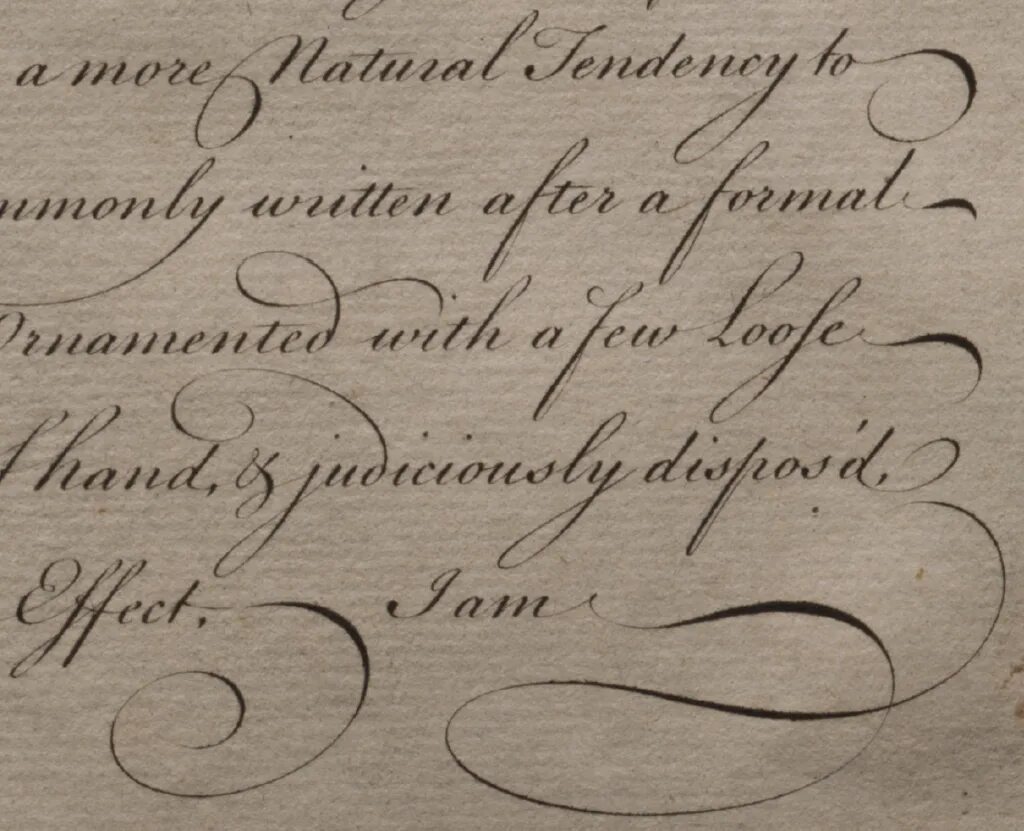 a more Natural Tendency to
mmonly written after a formal
Ornamented with a few Loose
f hand, & judiciously dispos'd,
Effect. I am